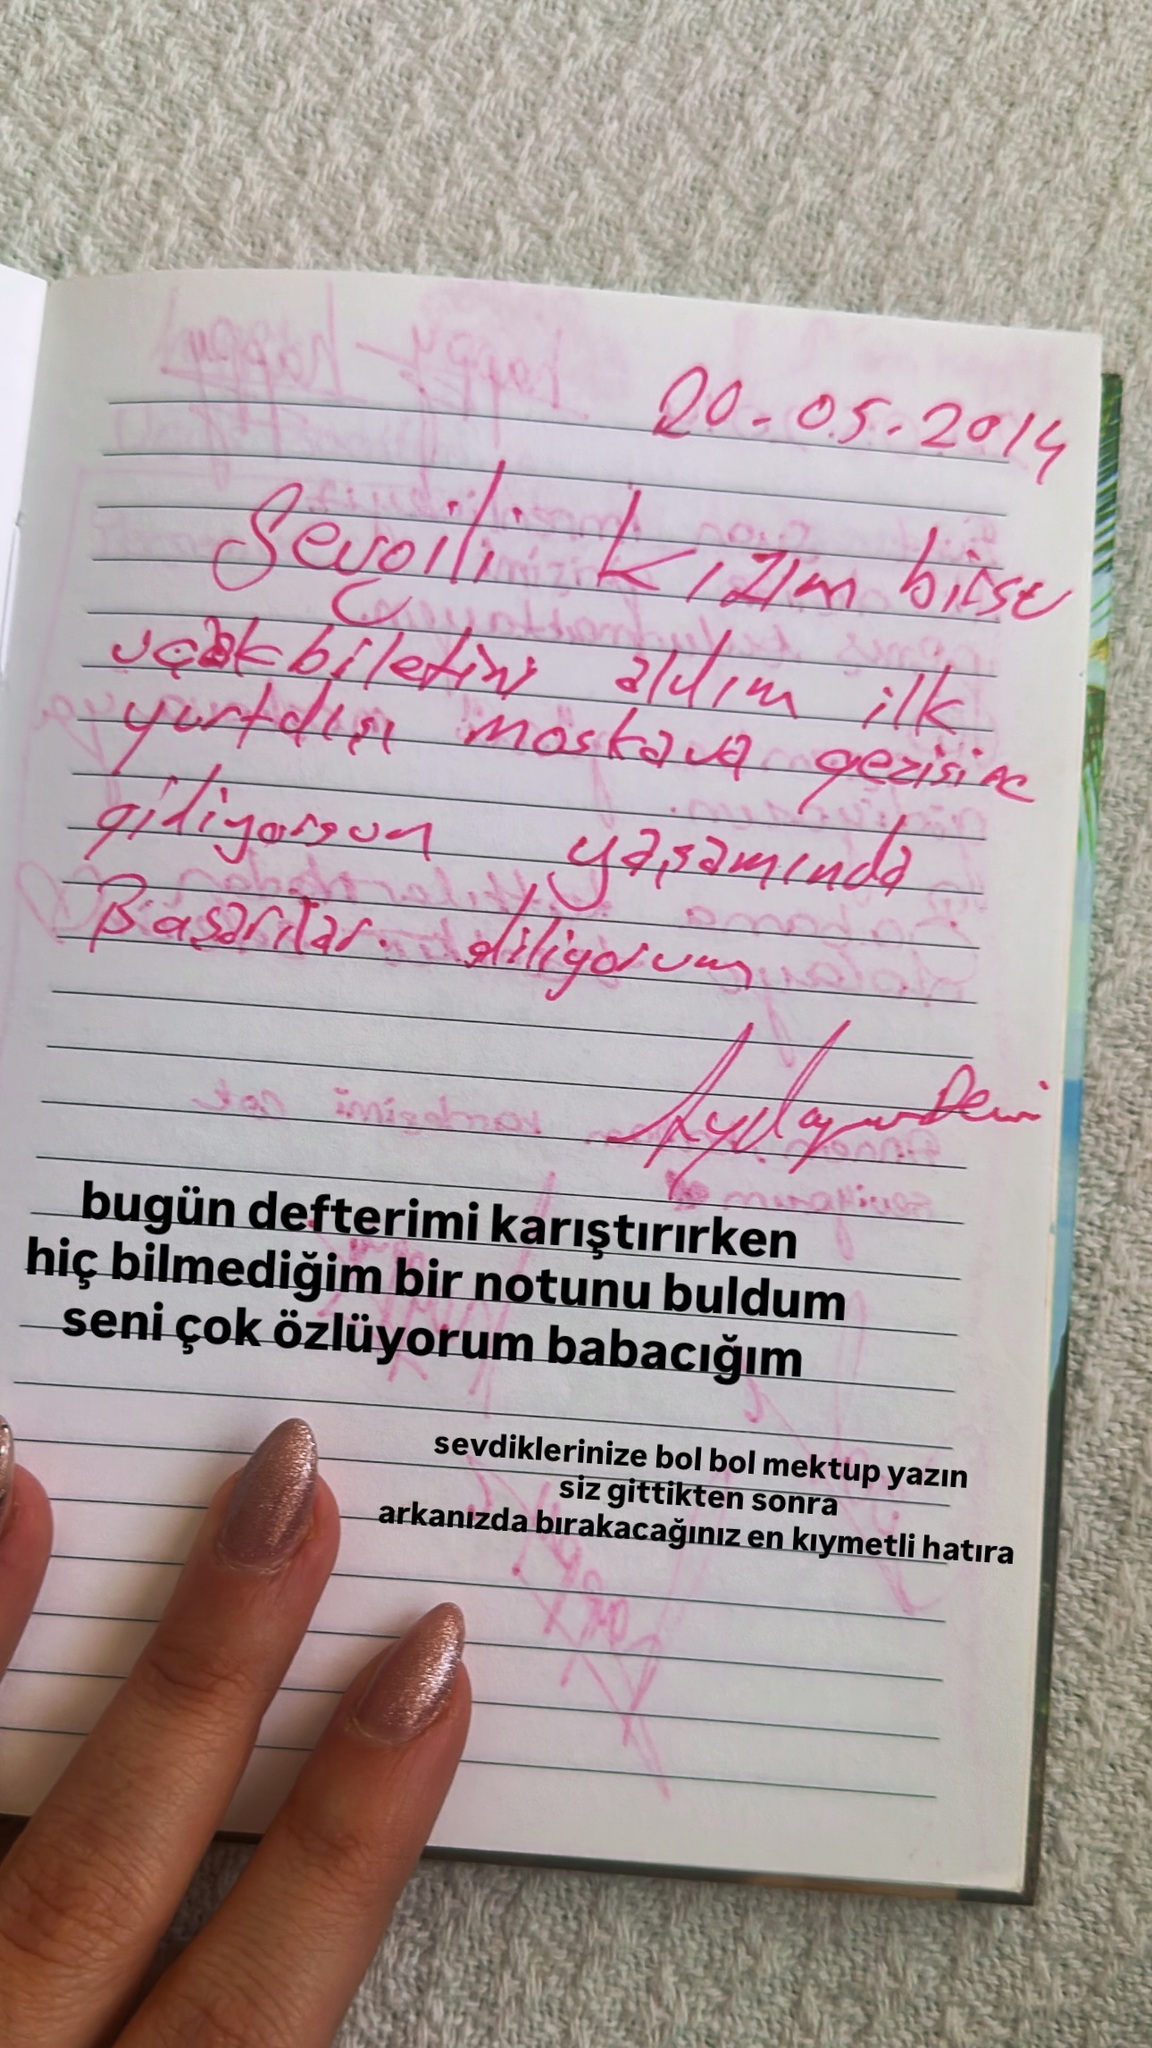 20.05.2014
Sevgili kızım birse
uçakbiletini aldım ilk
yurtdışı moskava gezisine
gidiyorsun yaşamında
Başarılar diliyorum
bugün defterimi karıştırırken
hiç bilmediğim bir notunu buldum
seni çok özlüyorum babacığım
sevdiklerinize bol bol mektup yazın
siz gittikten sonra
arkanızda bırakacağınız en kıymetli hatıra